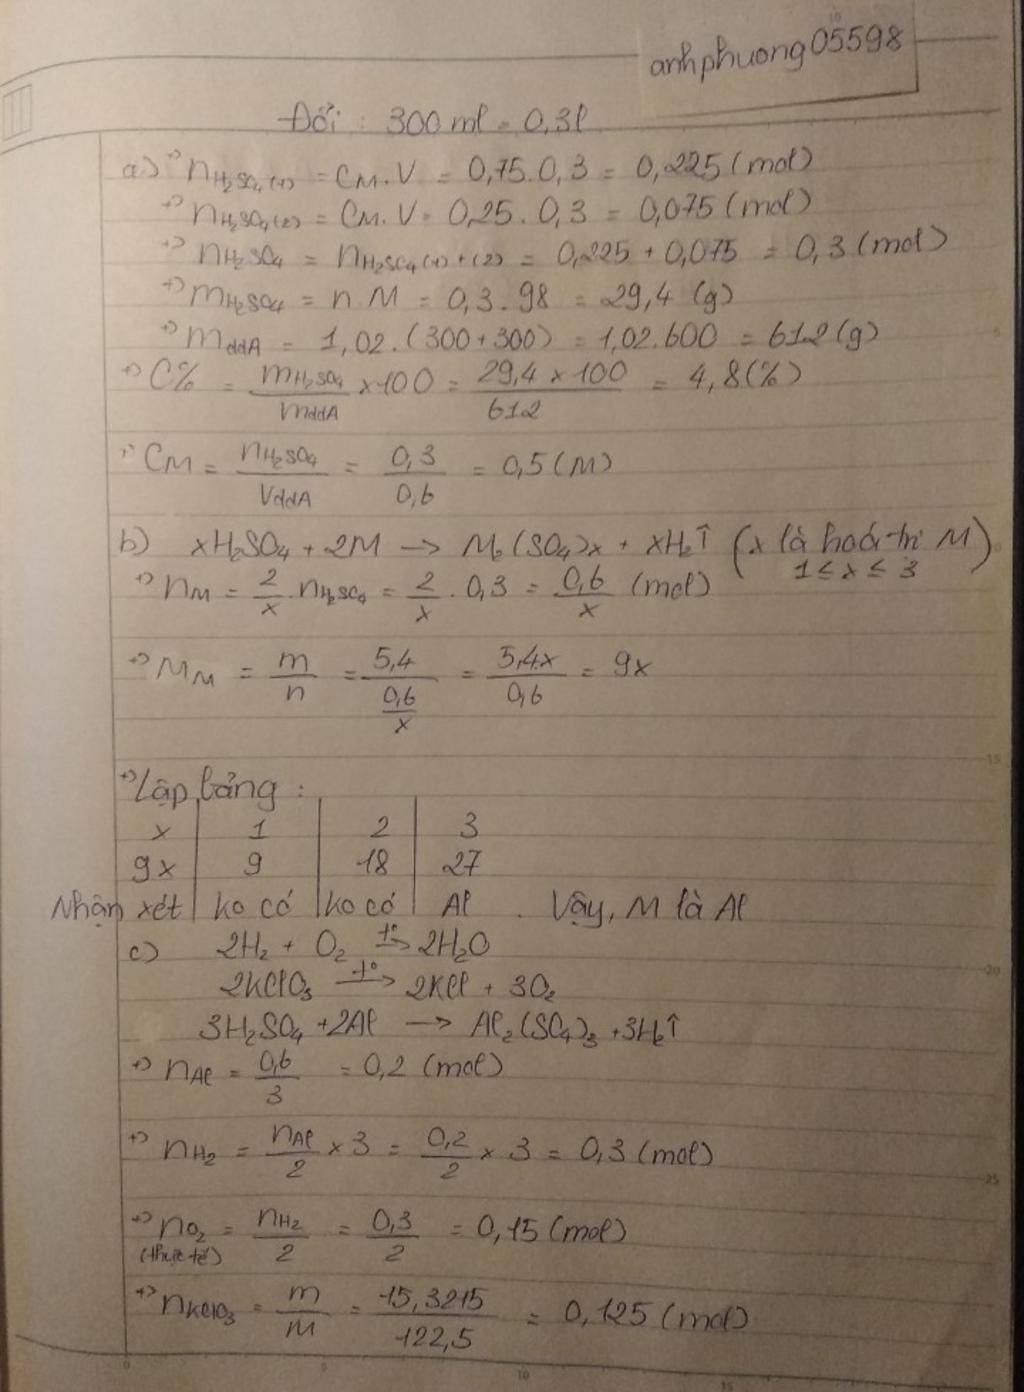 anhphuong05598
Đổi: 300ml = 0,3l
a) +) nH₂SO₄(1) = CM.V = 0,75.0,3 = 0,225 (mol)
+) nH₂SO₄(2) = CM.V = 0,25.0,3 = 0,075 (mol)
+) nH₂SO₄ = nH₂SO₄(1)+(2) = 0,225 + 0,075 = 0,3 (mol)
+) mH₂SO₄ = n.M = 0,3.98 = 29,4 (g)
+) mddA = 1,02.(300+300) = 1,02.600 = 612 (g)
+) C% = mH₂SO₄/mddA x100 = 29,4 x 100/612 = 4,8(%)
+) CM = nH₂SO₄/VddA = 0,3/0,6 = 0,5 (M)
b) xH₂SO₄ + 2M → M₂(SO₄)x + xH₂↑ (x là hoá trị M) 1 ≤ x ≤ 3
+) nM = 2/x . nH₂SO₄ = 2/x . 0,3 = 0,6/x (mol)
+) MM = m/n = 5,4/(0,6/x) = 5,4x/0,6 = 9x
+) Lập bảng:
x 1 2 3
9x 9 18 27
Nhận xét ko có ko có Al . Vậy, M là Al
c) 2H₂ + O₂ t°→ 2H₂O
2KClO₃ t°→ 2KCl + 3O₂
3H₂SO₄ + 2Al → Al₂(SO₄)₃ + 3H₂↑
+) nAl = 0,6/3 = 0,2 (mol)
+) nH₂ = nAl/2 x 3 = 0,2/2 x 3 = 0,3 (mol)
+) nO₂ (thực tế) = nH₂/2 = 0,3/2 = 0,15 (mol)
+) nKClO₃ = m/M = 15,3215/122,5 = 0,125 (mol)